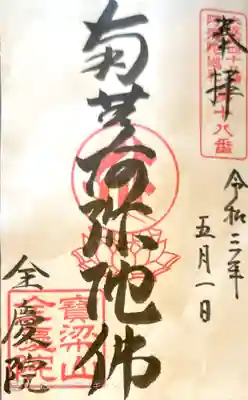 奉拝
十八番
令和三年
五月一日
南無阿弥陀佛
全慶院
寶梁山
全慶院